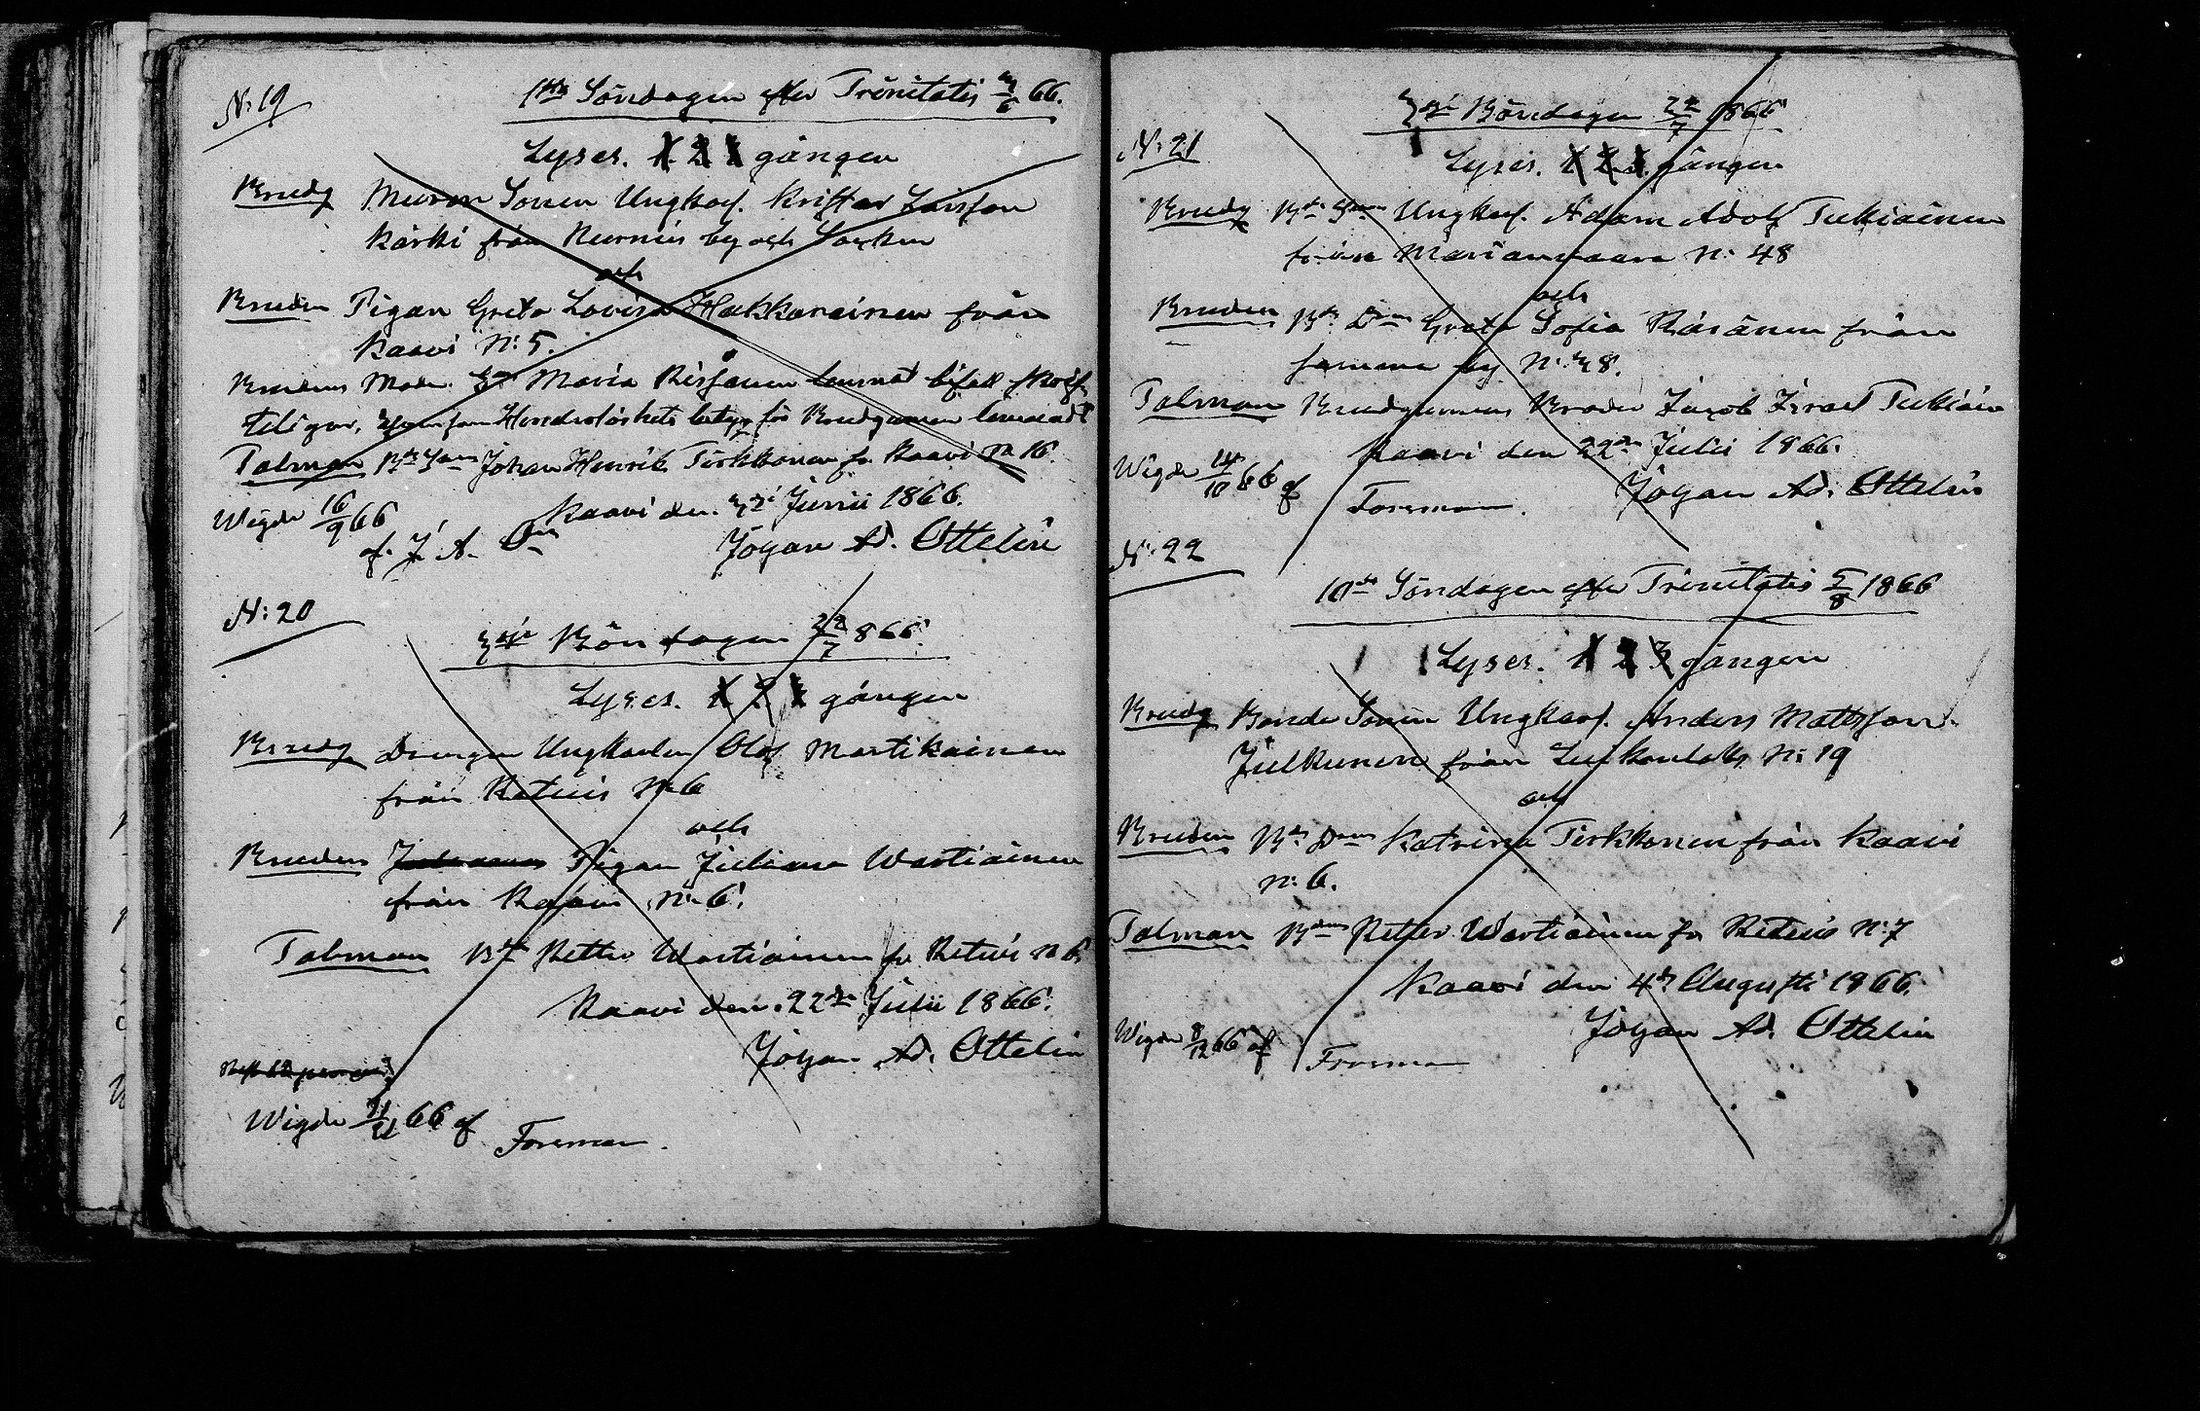 N:19
1sta Söndagen efter Trinitatis 3/6 66.
Lyses. 1 2 3 gången
Brudg Muraren Sonen Ungkarl. Krister Larsson
Kärki från Nurmis by och Socken
och
Bruden Pigan Greta Lovisa Hakkarainen från
Kaavi N:5.
Brudens Moder Maria Rissanen lemnat bifall skrift
teligen, Hinderslöshets betyg för Brudgumen levereradt
Talman Bde Son Johan Henrik Tirkkonen fr Kaavi N 16
Kaavi den 3di Junii 1866.
Wigde 16/9 66
af J. A. On
Johan Ad. Ottelin
N:20
3dje Böndagen 22/7 866.
Lyses. 1 2 3 gången
Brudg Drengen Ungkarlen Olof Martikainen
från Retuis N:6
och
Bruden Juliana Pigan Juliana Wartiainen
från Kaavi N:6.
Talman Bde Petter Wartiainen fr Retuis N 6
Kaavi den 22dra Julii 1866.
Johan Ad. Ottelin
Wigde 11/11 66 af
Forsman.
3dje Böndagen 22/7 1866
N:21
Lyses. 1 2 3 gången
Brudg Bde Son Ungkarl. Adam Adolf Tukiainen
från Marianvaara N:48
och
Bruden Bde Dtr Greta Sofia Räsänen från
samma by N:48.
Talman Brudgumens Broder Jacob Israel Tukiain
Kaavi den 22dra Julii 1866.
Wigde 14/10 66 af
Forsman.
Johan Ad. Ottelin
N:22
10de Söndagen efter Trinitatis 5/8 1866
Lyses. 1 2 3 gången
Brudg Bonde Sonen Ungkarl. Anders Mattsson
Julkunen från Luikonlaks N:19
och
Bruden Bde Dtr Katrina Tirkkonen från Kaavi
N:6.
Talman Bden Petter Wartiainen fr Retuis N:7
Kaavi den 4de Augusti 1866.
Johan Ad. Ottelin
Wigde 8/12 66 af
Forsman